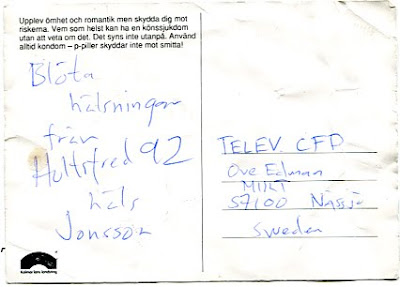 Upplev ömhet och romantik men skydda dig mot
riskerna. Vem som helst kan ha en könssjukdom
utan att veta om det. Det syns inte utanpå. Använd
alltid kondom – p-piller skyddar inte mot smitta!
Blöta
hälsningar
från
Hultsfred 92
häls
Jonsson
TELEV. CFP
Ove Edman
57100 Nässjö
Sweden
kalmar läns landsting